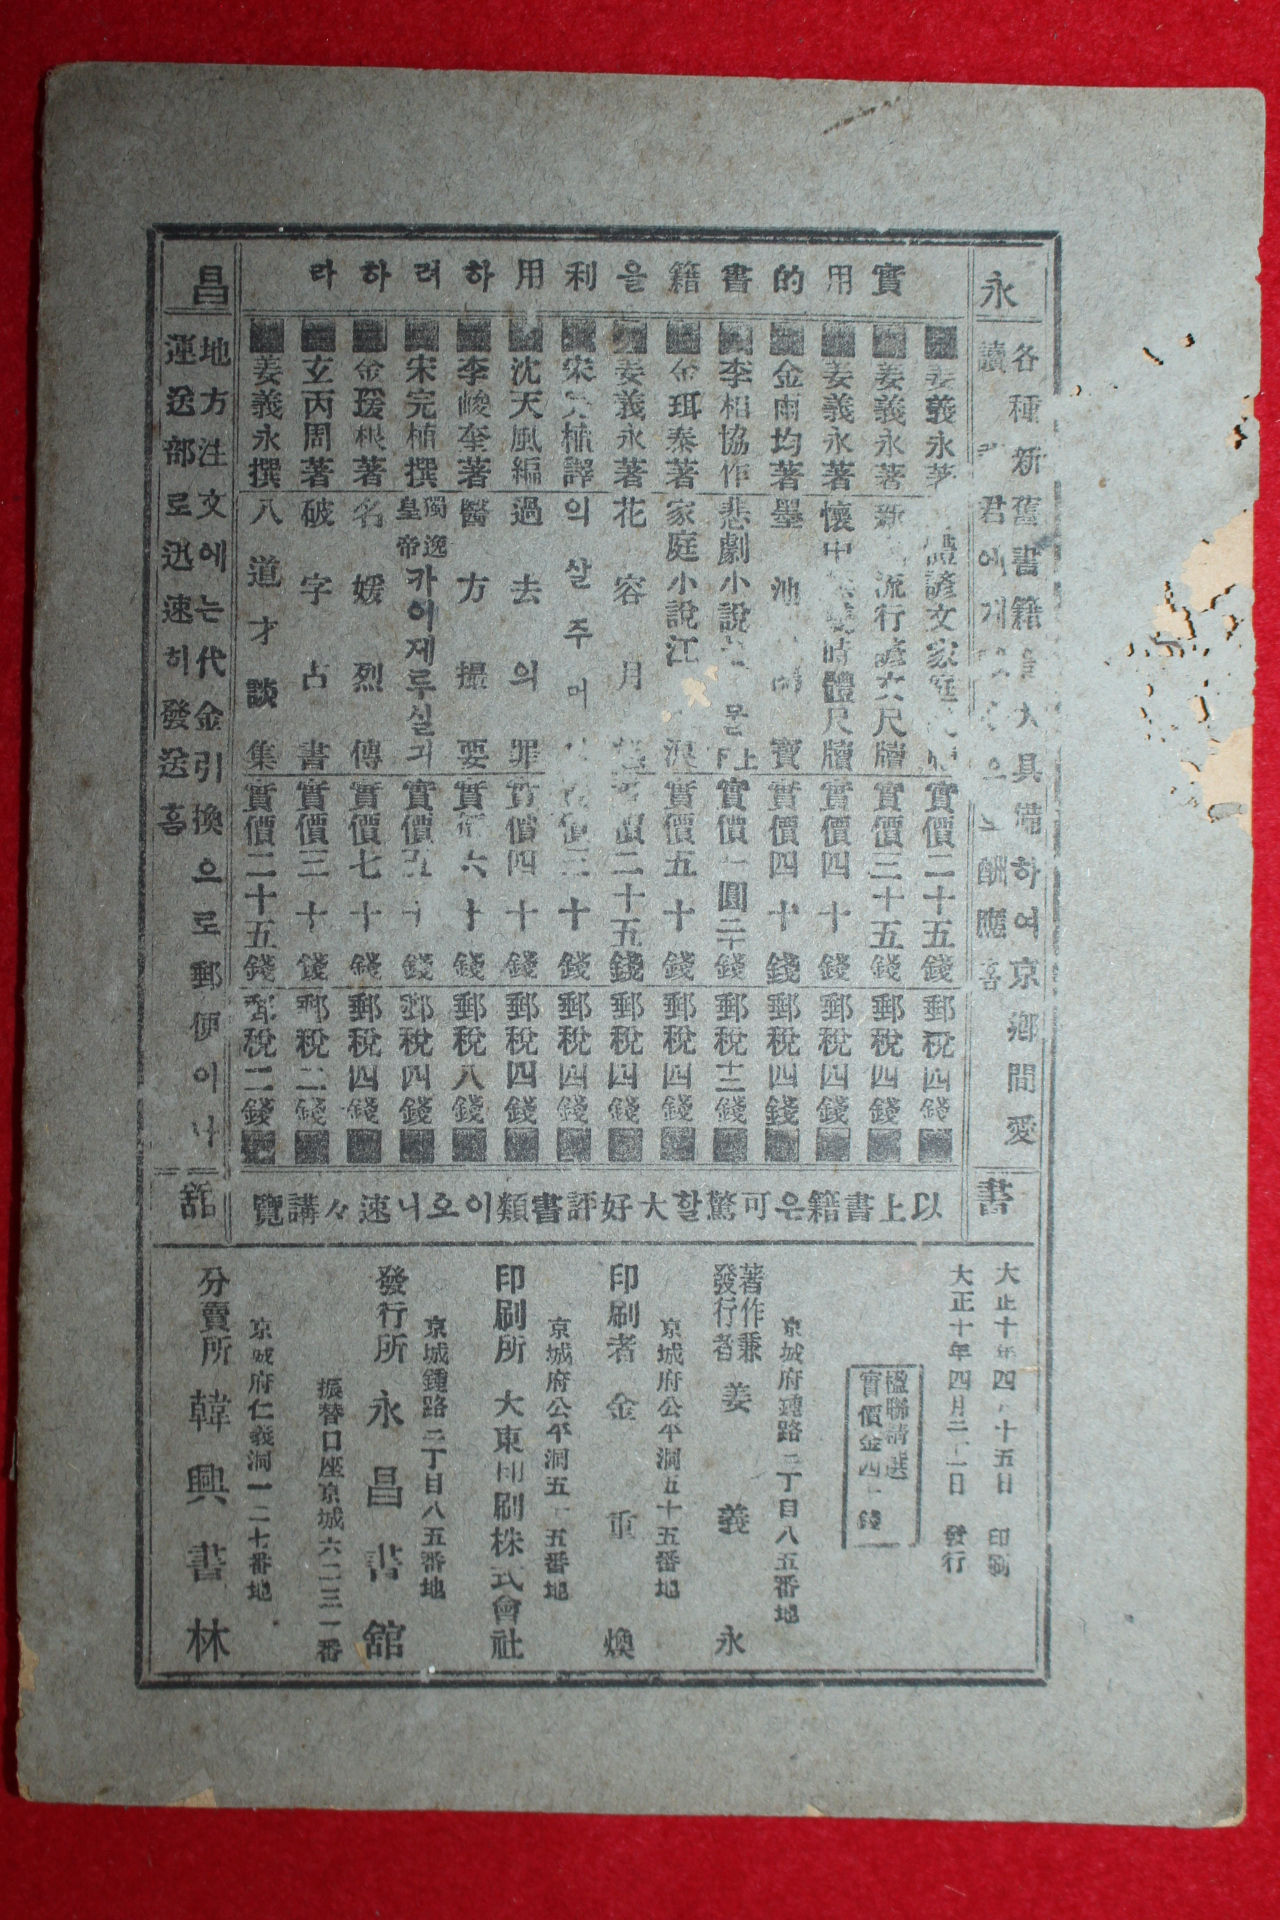 實用的書籍을利用하려하라
永昌書舘
各種新舊書籍 大具備하여京鄕間愛
讀 君에게 酬應홈
姜義永著 諺文家庭 實價二十五錢 郵稅四錢
姜義永著 新 流行諺文尺牘 實價三十五錢 郵稅四錢
姜義永著 懷中 時體尺牘 實價四十錢 郵稅四錢
金雨均著 墨池 寶 實價四十錢 郵稅四錢
李相協作 悲劇小說 눈물 上下 實價一圓二十錢 郵稅十二錢
金珥泰著 家庭小說江 浪 實價五十錢 郵稅四錢
姜義永著 花容月 實價二十五錢 郵稅四錢
宋完植譯 의살주머 實價三十錢 郵稅四錢
沈天風編 過去의罪 實價四十錢 郵稅四錢
李峻奎著 醫方撮要 實價六十錢 郵稅八錢
宋完植撰 獨逸皇帝카이제루실긔 實價五十錢 郵稅四錢
金瑗根著 名媛烈傳 實價七十錢 郵稅四錢
玄丙周著 破字占書 實價三十錢 郵稅二錢
姜義永撰 八道才談集 實價二十五錢 郵稅二錢
地方注文에는代金引換으로郵便이나
運送部로迅速히發送홈
以上書籍은可驚할大好評書類이오니速々講覽
大正十年四月十五日 印刷
大正十年四月二十日 發行
楹聯精選
實價金四十錢
京城府鍾路二丁目八五番地
著作兼發行者 姜義永
京城府公平洞五十五番地
印刷者 金重煥
京城府公平洞五十五番地
印刷所 大東印刷株式會社
京城鍾路二丁目八五番地
發行所 永昌書舘
振替口座京城六二三一番
京城府仁義洞一二七番地
分賣所 韓興書林